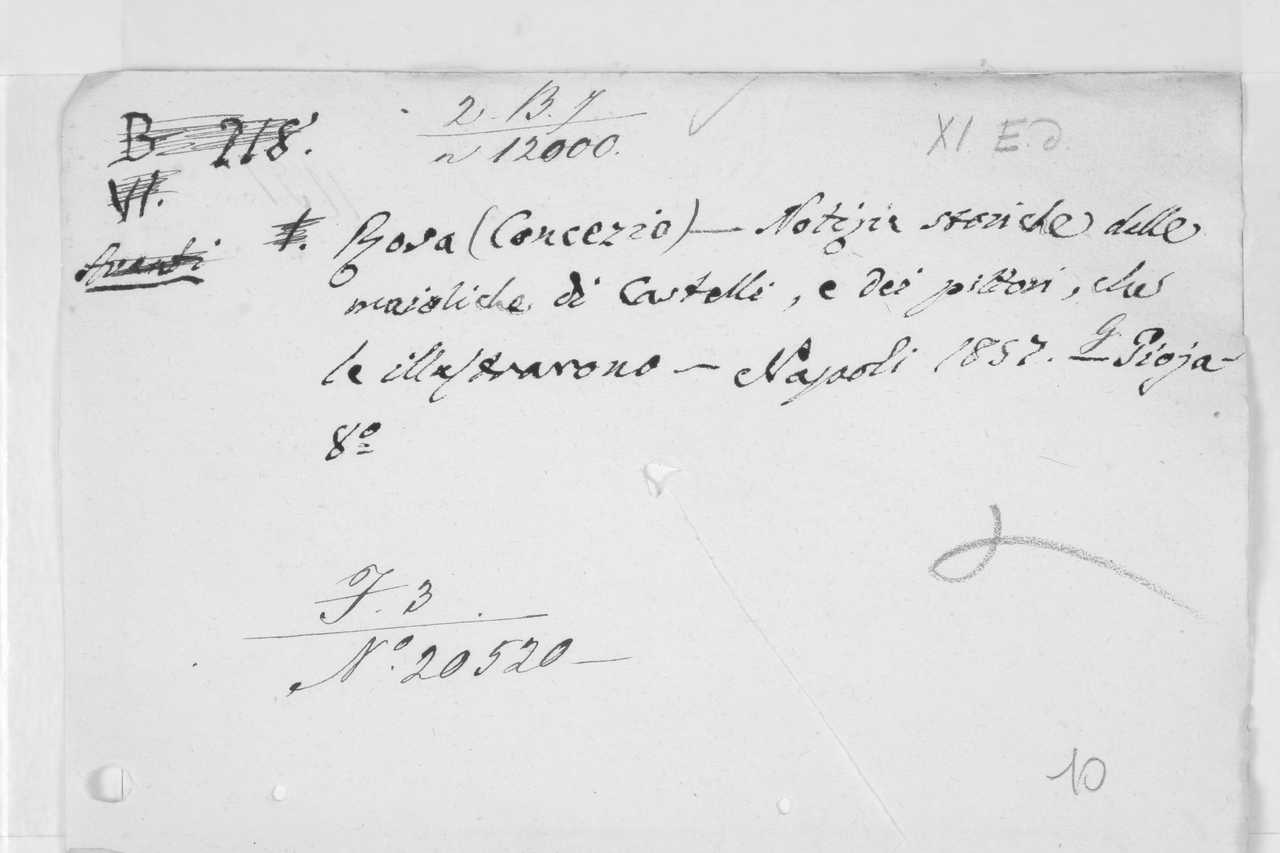 B 218.
2. B. 7
n 12000.
XI. E. d.
VII.
Avanti
Rosa (Concezio) — Notizie storiche delle
maioliche di Castelli, e dei pittori, che
le illustrarono — Napoli 1857. G. Gioja —
8º
F. 3
Nº. 20520 —
10